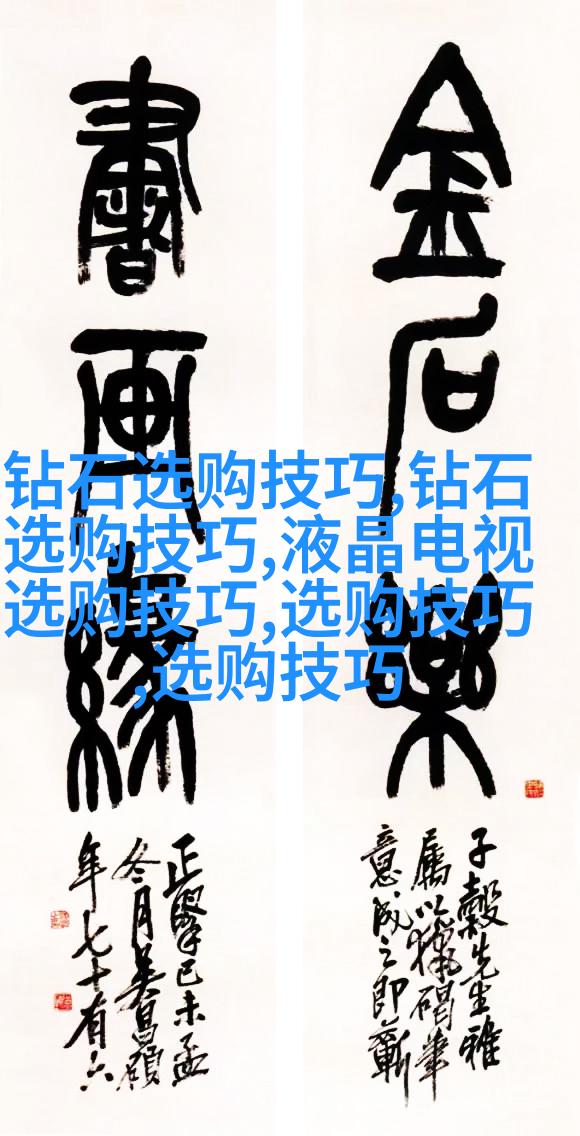 金石樂
書画緣
子穀先生雅
屬以獵碣筆
意成之即蘄
正擧己未孟
冬月吴昌碩
年七十有六
钻石选购技巧,钻石
选购技巧,液晶电视
选购技巧,选购技巧
,选购技巧